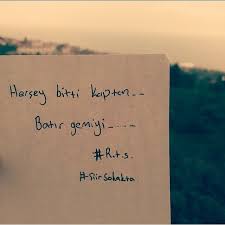 Herşey bitti kaptan_ _
Batır gemiyi_ _ _ _
#R.t.s.
#şiirsokakta